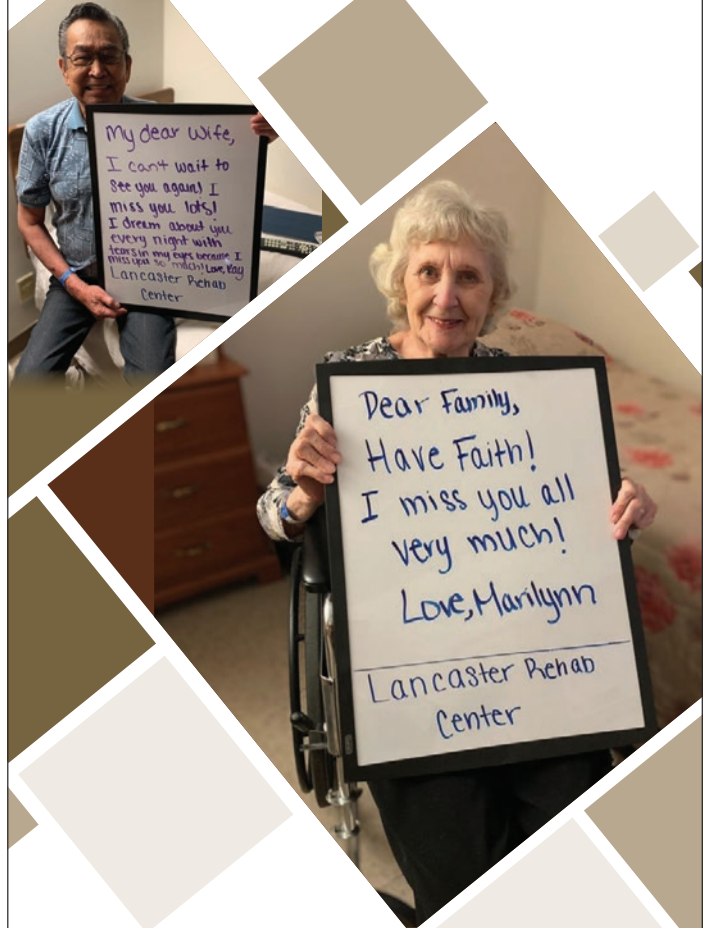 My dear Wife,
I can't wait to
see you again! I
miss you lots!
I dream about you
every night with
tears in my eyes because I
miss you so much! Love, Ray
Lancaster Rehab
Center
Dear Family,
Have Faith!
I miss you all
very much!
Love, Marilynn
Lancaster Rehab
Center